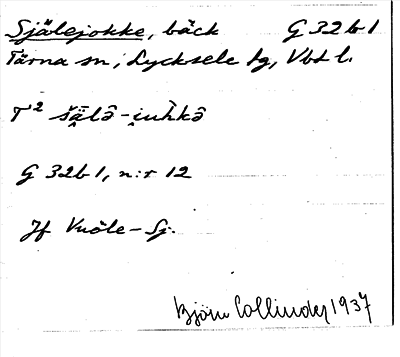 Själejokke, bäck G 32 b 1
Tärna sn, Lycksele lg, Vbt l.
T²
G 32 b 1, n:r 12
Jf Vuöle-Sj.
Björn Collinder 1937